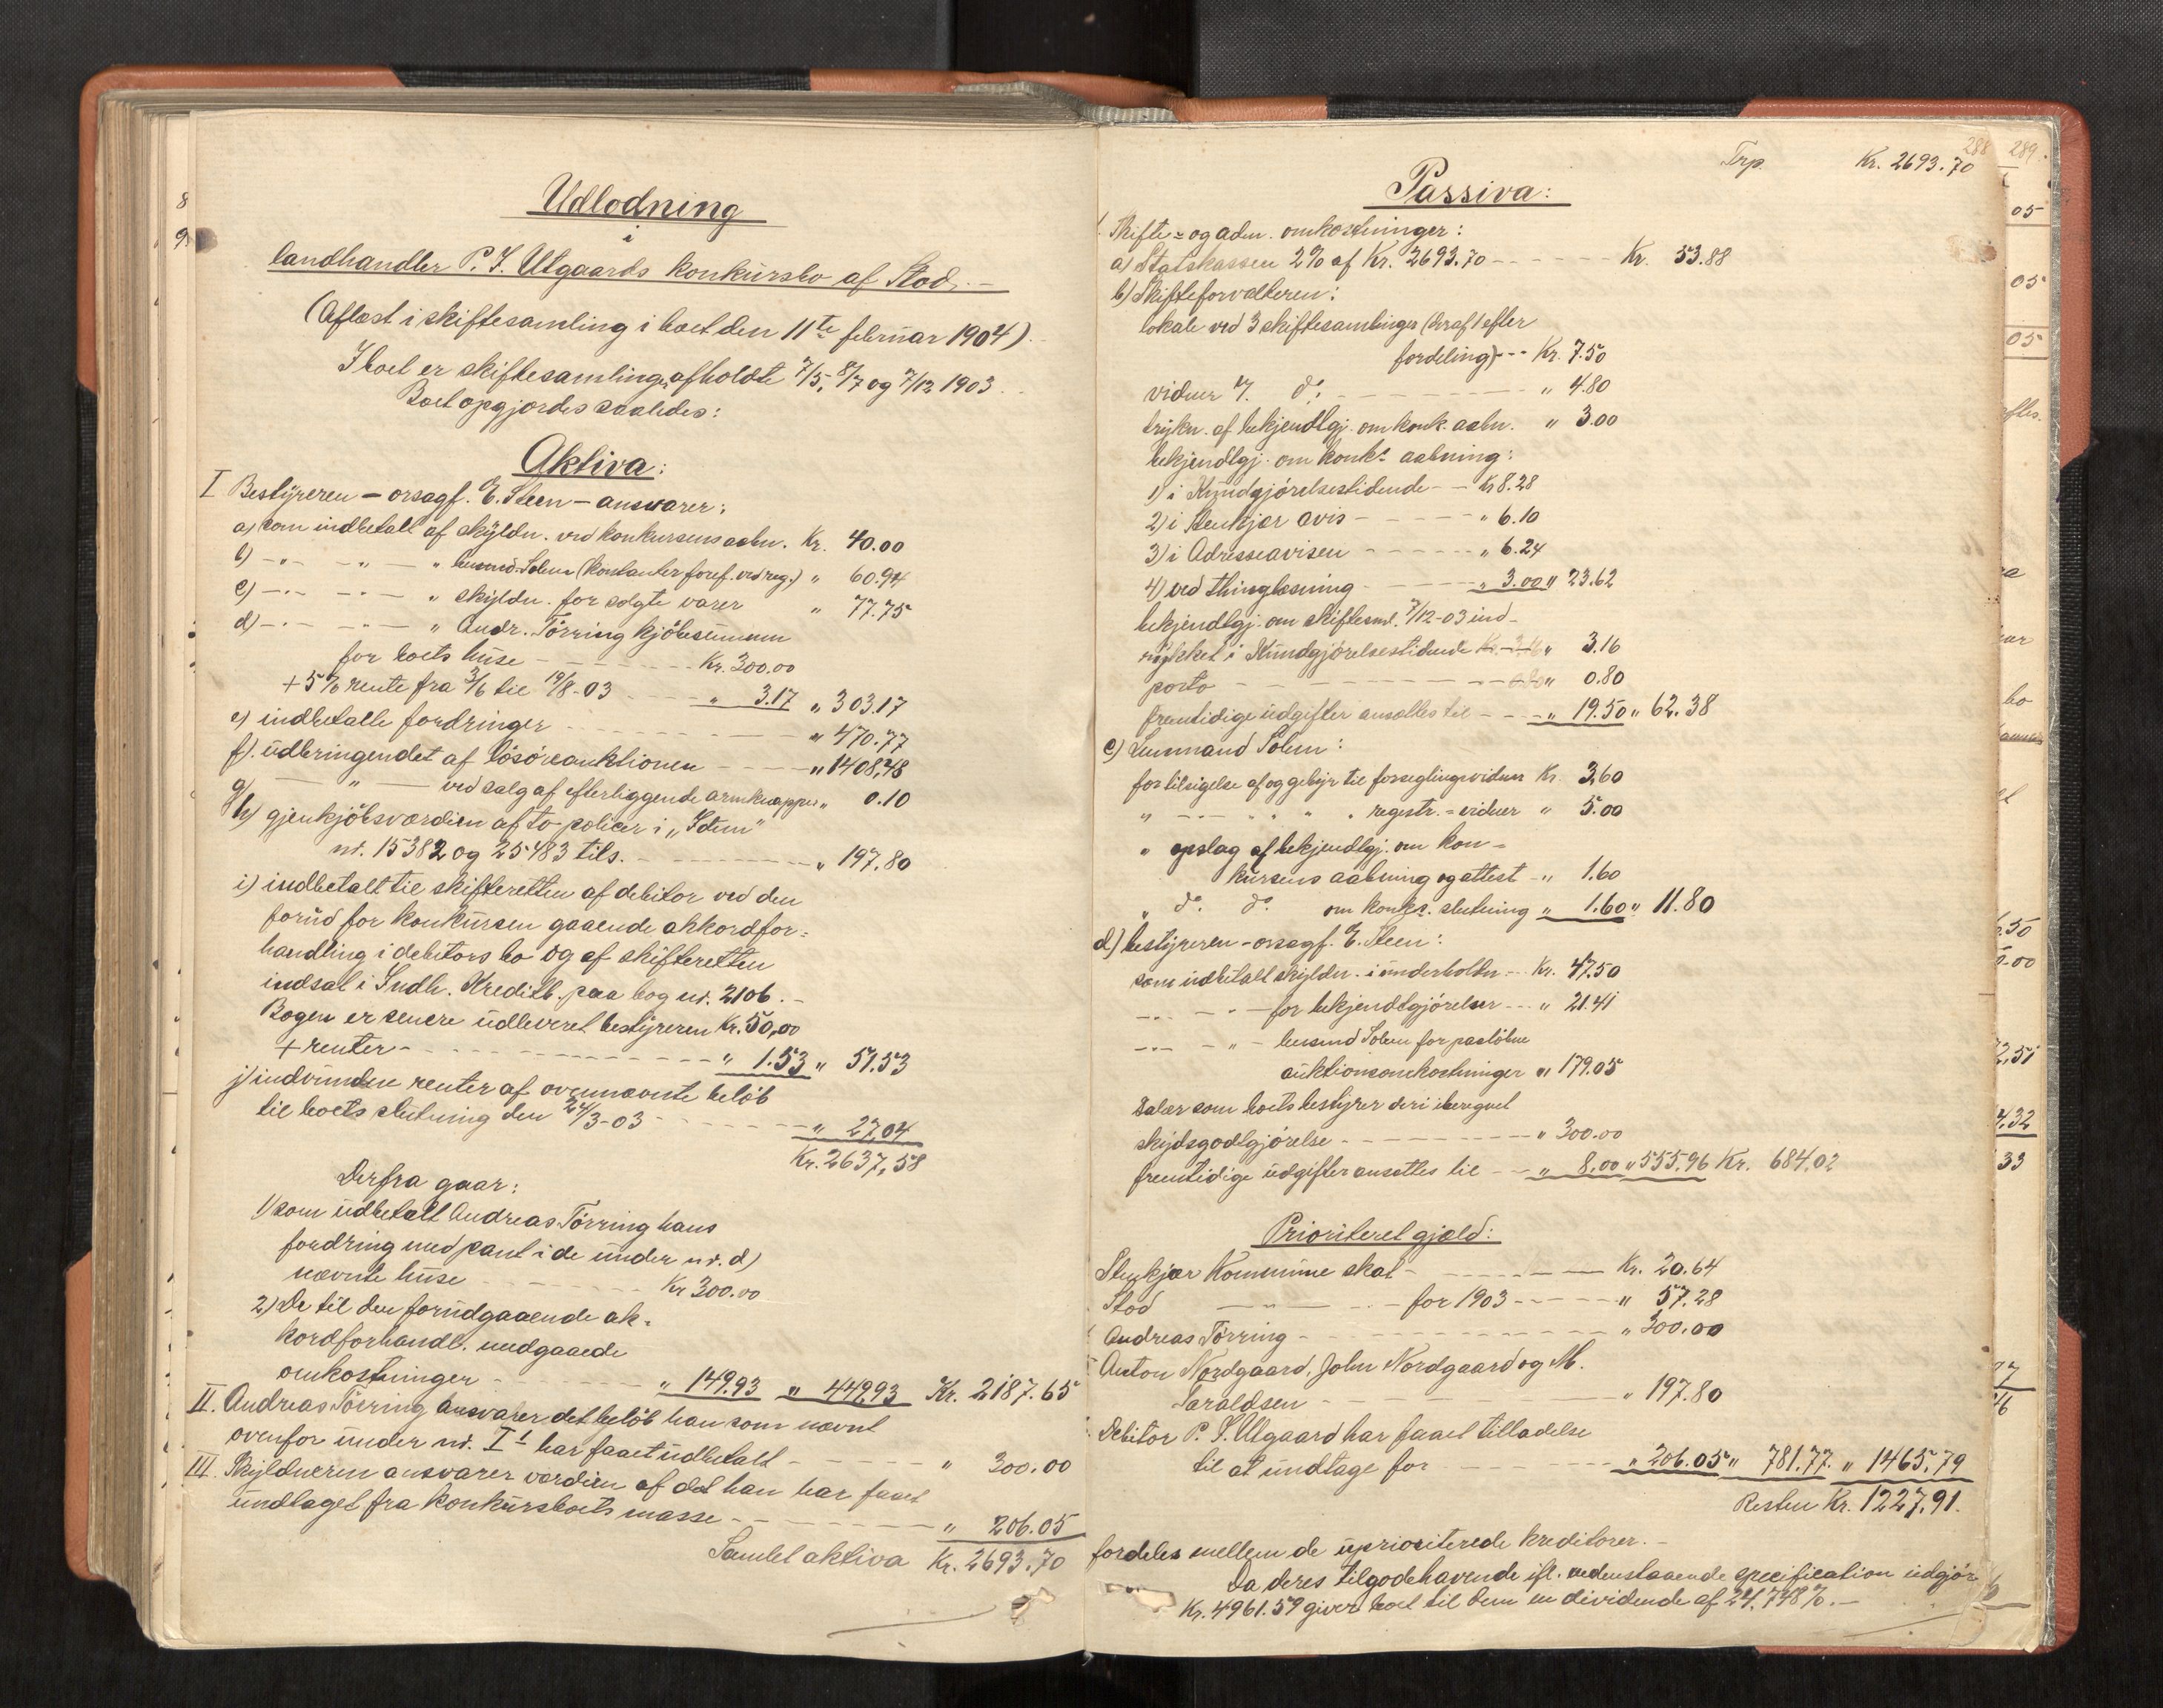 Udlodning
i
landhandler P. J. Utgaards konkursbo af Stod.—
(Aflæst i skiftesamling i boet den 11te februar 1904)
I boet er skiftesamlinger afholdte 7/5, 8/7 og 7/12 1903.
Boet opgjordes saaledes:
Aktiva:
I Bestyreren – orsagf. E. Steen – ansvarer:
a) som indbetalt af skyldn. ved konkursens aabn. Kr. 40.00
b) —"— —"— " lensmd. Solem (kontanter foref. ved reg.) " 60.94
c) —"— —"— " skyldn. for solgte varer " 77.75
d) —"— —"— " Andr. Törring kjöbesummen
for boets huse — Kr. 300.00
+ 5% rente fra 3/6 til 19/8-03 — " 3.17 " 303.17
e) indbetalte fordringer — " 470.77
f) udbringendet af lösöreauktionen — " 1408,48
g) — " — ved salg af efterliggende armknapper " 0.10
h) gjenkjöbsværdien af to policer i „Idun"
nr. 15382 og 25483 tils. — " 197.80
i) indbetalt til skifteretten af debitor ved den
forud for konkursen gaaende akkordfor=
handling i debitors bo og af skifteretten
indsat i Indh. Kreditb. paa bog nr. 2106.—
Bogen er senere udleveret bestyreren Kr. 50,00
+ renter — " 1.53 " 51.53
j) indvundne renter af ovennævnte belöb
til boets slutning den 24/3-03 — " 27,04
Kr. 2637,58
Derfra gaar:
1) som udbetalt Andreas Törring hans
fordring med pant i de under nr. d)
nævnte huse — Kr 300.00
2) De til den forudgaaende ak=
kordforhandl. medgaaede
omkostninger — " 149.93 " 449,93 Kr. 2187.65
II. Andreas Törring ansvarer det belöb han som nævnt
ovenfor under nr. I 1 har faaet udbetalt — " 300.00
III. Skyldneren ansvarer værdien af det han har faaet
undtaget fra konkursboets masse — " 206.05
Samlet aktiva Kr. 2693.70
288
289.
Trp. Kr. 2693.70
Passiva:
Skifte= og adm. omkostninger:
a) Statskassen 2% af Kr. 2693.70 — Kr. 53.88
b) Skifteforvalteren:
lokale ved 3 skiftesamlinger (hvaf 1 efter
fordeling) — Kr. 7.50
vidner do: — " 4.80
trykn. af bekjendtgj. om konk. aabn. " 3.00
bekjendtgj. om konks aabning:
1) i Kundgjörelsestidende — Kr 8.28
2) i Stenkjær avis — " 6.10
3) i Adresseavisen — " 6.24
4) ved thinglæsning — " 3.00 " 23.62
bekjendtgj. om skiftesml. 7/12-03 ind-
rykket i Kundgjörelsestidende Kr. 3.16 " 3.16
porto — " 0.80
fremtidige udgifter ansættes til — " 19.50 " 62.38
c) Lensmand Solem:
for tilsigelse af og gebyr til forseglingsvidner Kr. 3,60
" — " " " registr.=vidner " 5.00
" opslag af bekjendtgj. om kon=
kursens aabning og attest — " 1.60
" do. do. om konks. slutning " 1.60 " 11.80
d) bestyreren – orsagf. E. Steen:
som udbetalt skyldn. i underholdn — Kr. 47.50
—"— —"— for bekjendtgjörelser — " 21.41
—"— —"— lensmd Solem for paalöbne
auktionsomkostninger " 179.05
Salær som boets bestyrer deri iberegnet
skydsgodtgjörelse — " 300.00
fremtidige udgifter ansættes til — " 8,00 " 555,96 Kr. 684,02
Prioriteret gjæld:
Stenkjær Kommune skat — Kr. 20.64
Stod — " — for 1903 — " 57.28
Andreas Törring — " 300.00
Anton Nordgaard, John Nordgaard og M.
Saraldsen — " 197.80
Debitor P. J. Utgaard har faaet tilladelse
til at undtage for — " 206.05 " 781.77. " 1465.79
Resten Kr. 1227.91.
fordeles mellem de uprioriterede kreditorer.—
Da deres tilgodehavende ifl. nedenstaaende specification udgjör
Kr. 4961.59 giver boet til dem en dividende af 24,748%.—